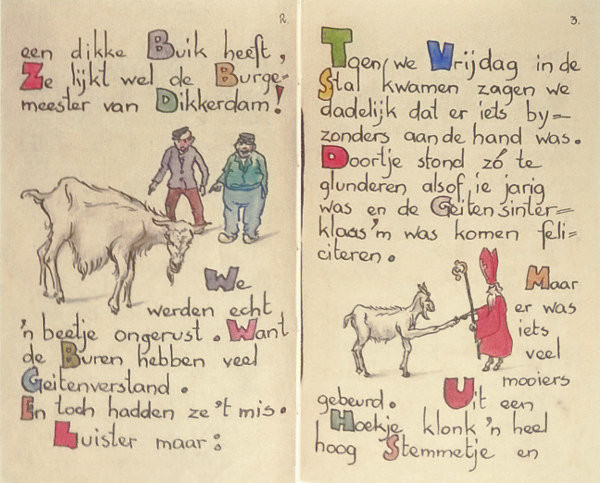 2.
een dikke Buik heeft,
Ze lijkt wel de Burge=
meester van Dikkerdam!
We
werden echt
'n beetje ongerust. Want
de Buren hebben veel
Geitenverstand.
En toch hadden ze 't mis.
Luister maar:
3.
Toen we Vrijdag in de
Stal kwamen zagen we
dadelijk dat er iets by=
zonders aan de hand was.
Doortje stond zó te
glunderen alsof ie jarig
was en de Geitensinter=
klaas 'm was komen feli=
citeren.
Maar
er was
iets
veel
mooiers
gebeurd. Uit een
Hoekje klonk 'n heel
hoog Stemmetje en